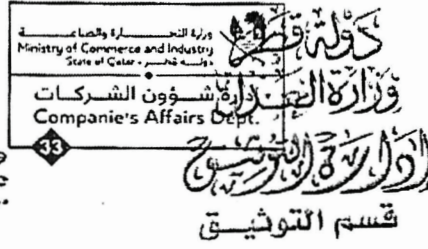 وزارة التجارة والصناعة
Ministry of Commerce and Industry
State of Qatar • دولة قطر
إدارة شؤون الشركات
Companie's Affairs Dept.
33
دولة قطر
وزارة العدل
إدارة التوثيق
قسم التوثيق